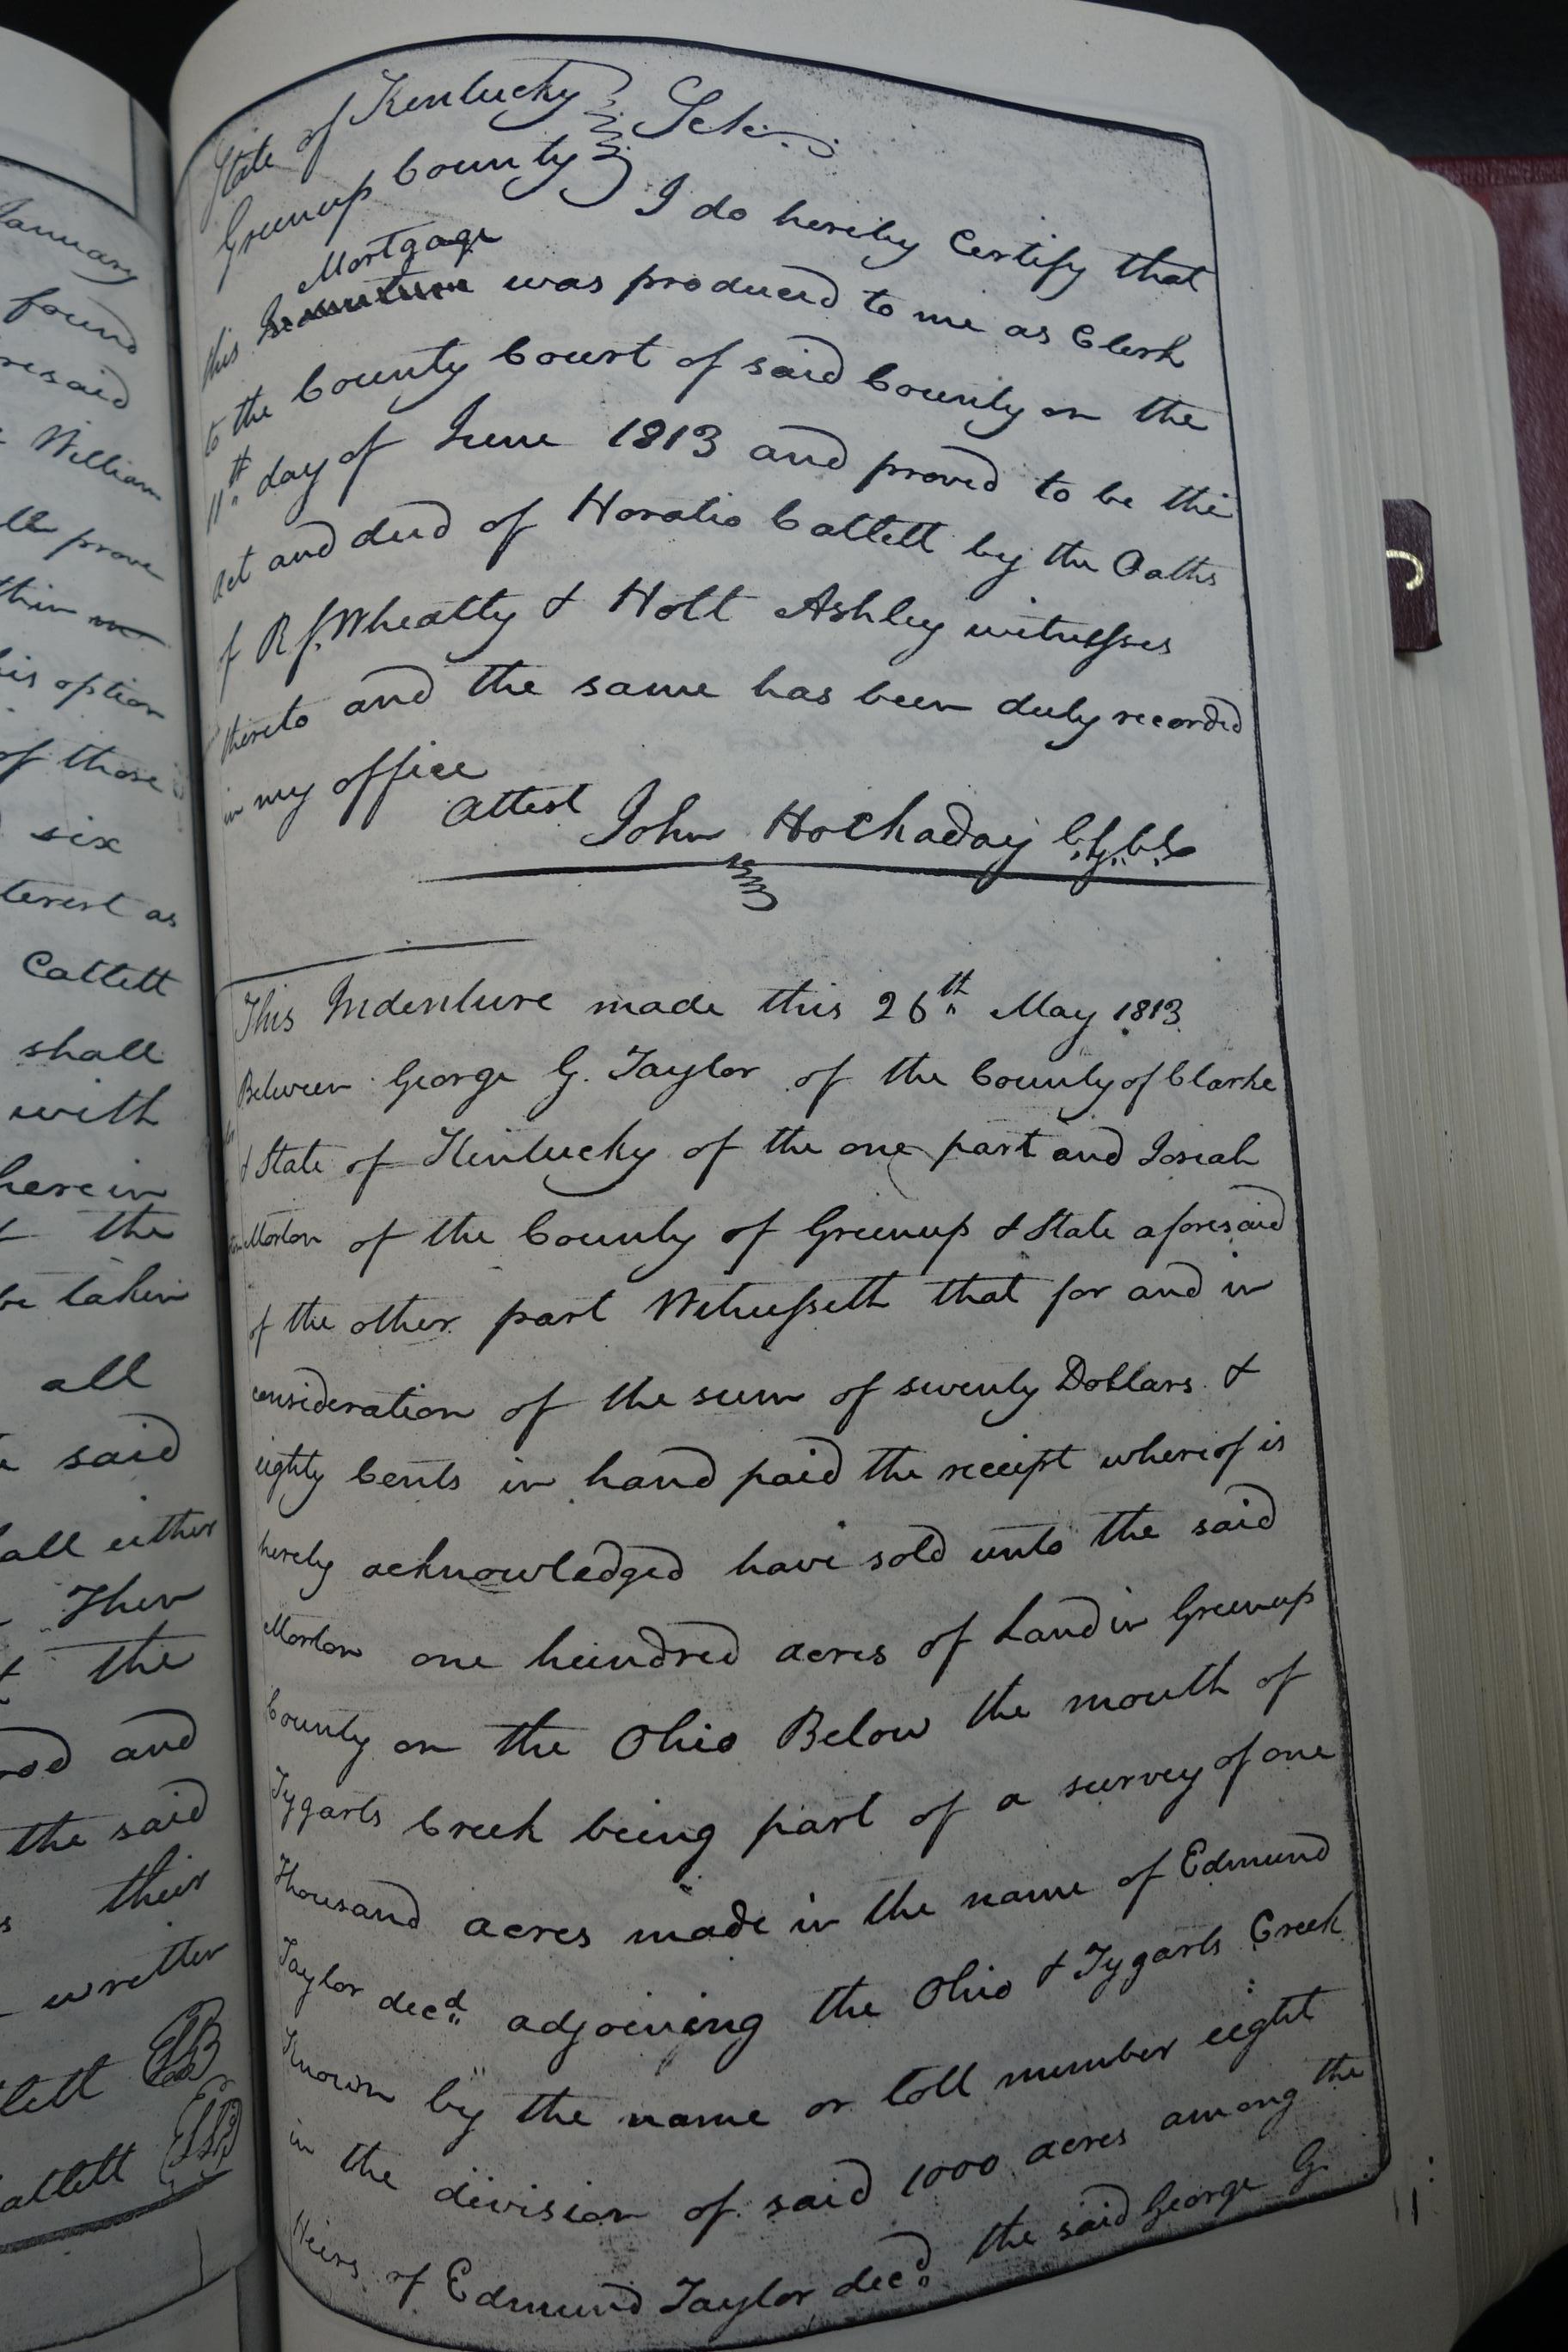 January
found
resaid
William
prove
thin
his option
of those
six
terest as
Catlett
shall
with
herein
the
be taken
all
said
all either
Then
the
and
the said
their
written
tlett
atlett
State of Kentucky } Sct.
Greenup County }
I do hereby Certify that
Mortgage
this was produced to me as Clerk
to the County Court of said County on the
11th day of June 1813 and proved to be the
act and deed of Horatio Catlett by the Oaths
of R J. Wheatly & Holt Ashley witnesses
thereto and the same has been duly recorded
in my office
Attest John Hockaday C.G.C.C.
This Indenture made this 26th May 1813
Between George G. Taylor of the County of Clarke
& State of Kentucky of the one part and Josiah
Morton of the County of Greenup & State aforesaid
of the other part Witnesseth that for and in
consideration of the sum of seventy Dollars &
eighty Cents in hand paid the receipt whereof is
hereby acknowledged have sold unto the said
Morton one hundred acres of Land in Greenup
County on the Ohio Below the mouth of
Tygarts Creek being part of a survey of one
Thousand acres made in the name of Edmund
Taylor decd adjoining the Ohio & Tygarts Creek
Known by the name or lott number eight
in the division of said 1000 acres among the
Heirs of Edmund Taylor decd the said George G